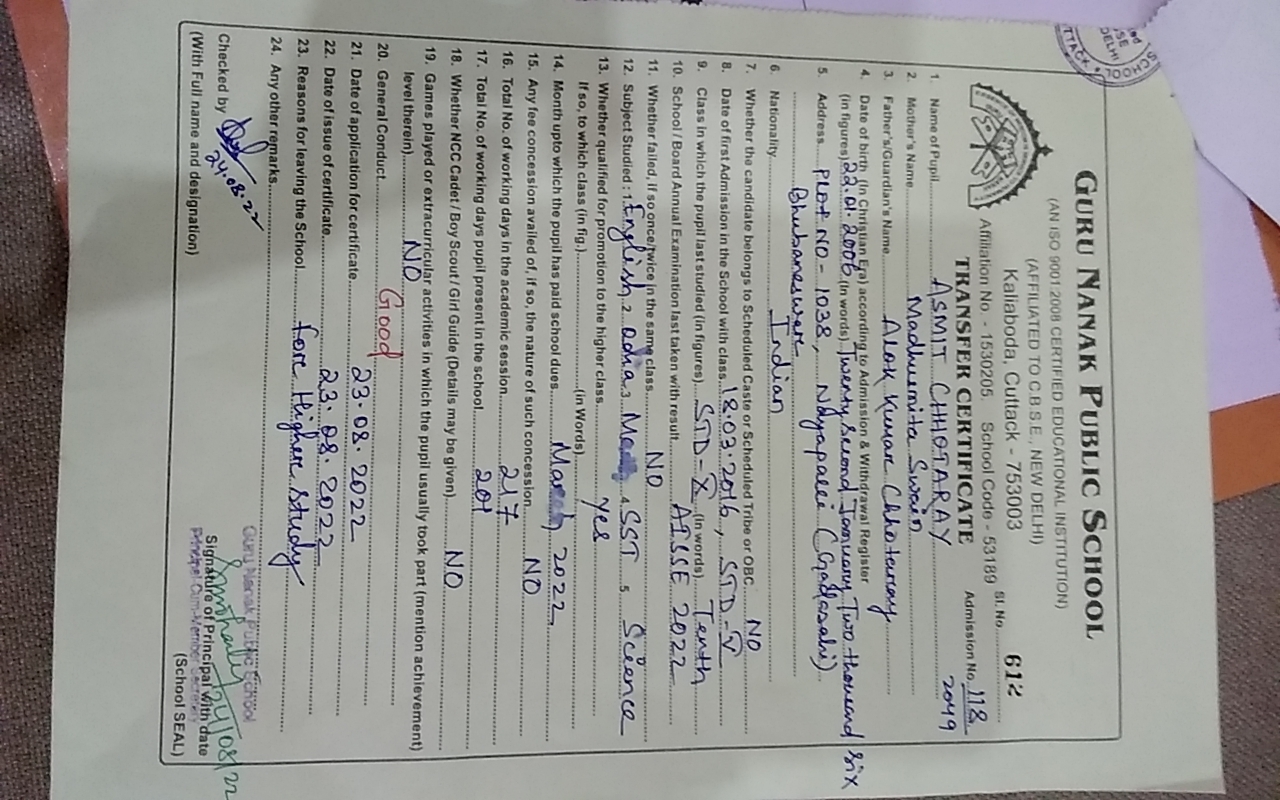 GURU NANAK PUBLIC SCHOOL
(AN ISO 9001:2008 CERTIFIED EDUCATIONAL INSTITUTION)
(AFFILIATED TO C.B.S.E., NEW DELHI)
Kaliaboda, Cuttack - 753003
Sl. No. 612
Affiliation No. - 1530205 School Code - 53189
TRANSFER CERTIFICATE
Admission No. 118
2049
1. Name of Pupil ASMIT CHHOTARAY
2. Mother's Name Madhumita Swain
3. Father's/Guardian's Name Alok Kumar Chhotaray
4. Date of birth (In Christian Era) according to Admission & Withdrawal Register
(in figures) 22.01.2006 (In words) Twenty second January Two thousand six
5. Address Plot NO - 1038, Nayapalli (Gadasahi)
Bhubaneswar
6. Nationality Indian
7. Whether the candidate belongs to Scheduled Caste or Scheduled Tribe or OBC NO
8. Date of first Admission in the School with class 18.03.2016, STD - V
9. Class in which the pupil last studied (in figures) STD - X (In words) Tenth
10. School / Board Annual Examination last taken with result AISSE 2022
11. Whether failed, if so once/twice in the same class NO
12. Subject Studied : 1 English 2 Odia 3 4 SST 5 Science
13. Whether qualified for promotion to the higher class Yes
If so, to which class (in fig.) (in Words)
14. Month upto which the pupil has paid school dues March 2022
15. Any fee concession availed of, if so, the nature of such concession NO
16. Total No. of working days in the academic session 217
17. Total No. of working days pupil present in the school 201
18. Whether NCC Cadet / Boy Scout / Girl Guide (Details may be given) NO
19. Games played or extracurricular activities in which the pupil usually took part (mention achievement)
level therein) NO
20. General Conduct Good
21. Date of application for certificate 23.08.2022
22. Date of issue of certificate 23.08.2022
23. Reasons for leaving the School for Higher Study
24. Any other remarks
Checked by
24.08.22
(With Full name and designation)
Guru Nanak Public School
24/08/22
Signature of Principal with date
Principal Cum-Member Secretary
(School SEAL)